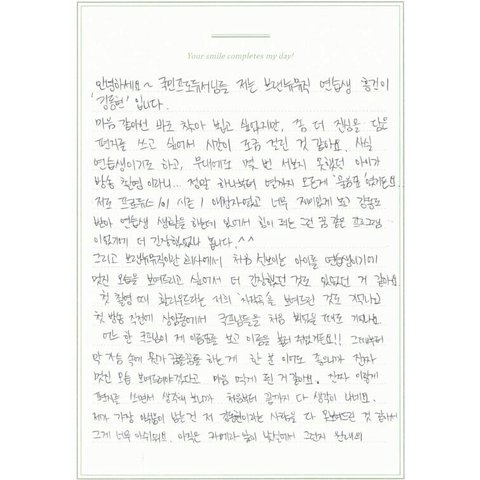 Your smile completes my day!
안녕하세요~ 국민프로듀서님들 저는 브랜뉴뮤직 연습생 홍일이
'김동현' 입니다.
마음 같아선 바로 찾아 뵙고 싶었지만, 좀 더 진심을 담은
편지를 쓰고 싶어서 시간이 조금 걸린 것 같아요. 사실
연습생이기도 하고, 무대에도 몇 번 서보지 못했던 아이가
방송 촬영이라니... 정말 하나부터 열까지 모든게 '물음표' 였거든요..
저도 프로듀스101 시즌1 애청자였고 너무 재미있게 보고 감동도
받아 연습생 생활을 하는데 있어서 힘이 되는 그런 꿈 같은 프로그램
이었기에 더 긴장했었나 봅니다.^^
그리고 브랜뉴뮤직이란 회사에서 처음 선보이는 아이돌 연습생이기에
멋진 모습을 보여드리고 싶어서 더 긴장했던 것도 있었던 거 같아요.
첫 촬영 때 할리우드라는 저의 자작곡을 보여드린 것도 기억나고
첫 방송 직전에 상암동에서 국프님들을 처음 뵈었을 때도 기억나요.
어느 한 국프님이 제 이름표를 보고 이름을 불러 주셨거든요!! 그때부터
막 가슴 속에 뭔가 쿵쿵쿵쿵 하는게 한 분이라도 좋으니까 진짜
멋진 모습 보여드려야겠다고 마음 먹게 된 거 같아요. 진짜 이렇게
편지를 쓰면서 생각해 보니까 처음부터 끝까지 다 생각이 나네요.
제가 가장 아쉬움이 남는 건 저 김동현이라는 사람을 다 못보여드린 것 같아서
그게 너무 아쉬워요. 아직은 카메라 앞이 낯설어서 그런지 원래의